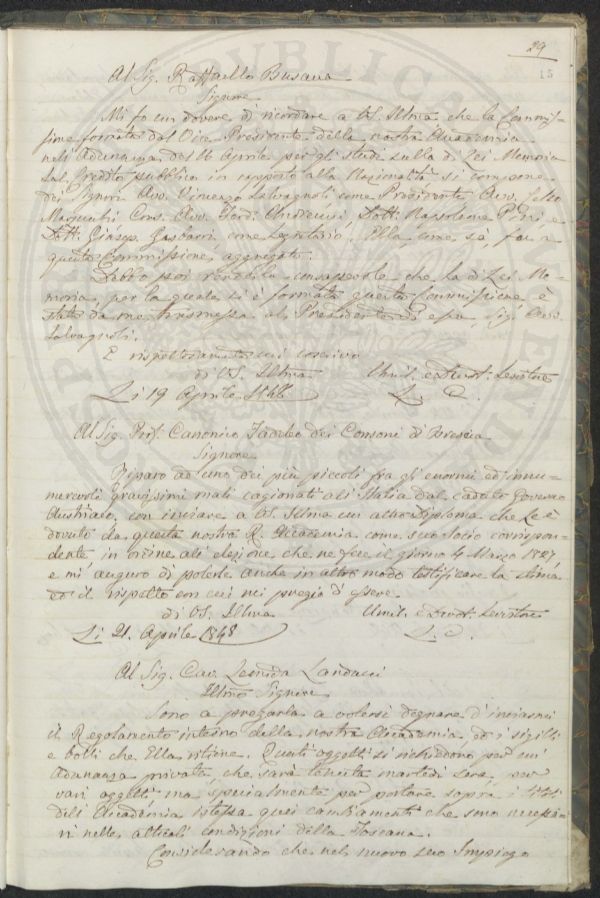 29
15
Al Sig. Raffaello Busacca
Signore
Mi fo un dovere di ricordare a VS. Illma che la Commis-
sione formata dal Vice Presidente della nostra Accademia
nell'Adunanza del 16 Aprile per gli studi sulla di Lei Memoria
sul Credito pubblico in rapporto alla Nazionalità si compone
dei Signori Avv. Vincenzo Salvagnoli come Presidente Avv.
Cons. Avv. Ferd. Andreucci Dott. Napoleone Pini e
Dott. Giusep. Gasbarri come Segretario. Ella come sà fu a
questa Commissione aggregato.
Debbo poi renderla consapevole che la di Lei Me-
moria, per la quale si è formata questa Commissione, è
stata da me trasmessa al Presidente di essa, Sig. Avv.
Salvagnoli.
E rispettosamente mi
di VS. Illma Umil. e Devot. Servitore
Li 19 Aprile 1848 L. C.
Al Sig. Prof. Canonico Taddeo dei Consoni di Brescia
Signore
Riparo ad uno dei più piccoli fra gli enormi ed innu-
merevoli gravissimi mali cagionati all'Italia dal caduto Governo
Austriaco, con inviare a VS. Illma un altro Diploma che Le è
dovuto da questa nostra R. Accademia come suo Socio corrispon-
dente in ordine all'elezione che ne fece il giorno 4 Marzo 1827,
e mi auguro di poterle anche in altro modo testificare la stima
ed il rispetto con cui mi pregio d'essere
di VS. Illma Umil. e Devot. Servitore
Li 21. Aprile 1848 L. C.
Al Sig. Cav. Leonida Landucci
Illmo Signore
Sono a pregarla a volersi degnare d'inviarmi
il Regolamento interno della nostra Accademia, ed i sigilli
e bolli che Ella ritiene. Questi oggetti si richiedono per un'
Adunanza privata, che sarà tenuta martedì sera, per
vari oggetti ma specialmente per portare sopra
dell'Accademia istessa quei cambiamenti che sono necessa-
ri nelle attuali condizioni della Toscana.
Considerando che nel nuovo suo Impiego